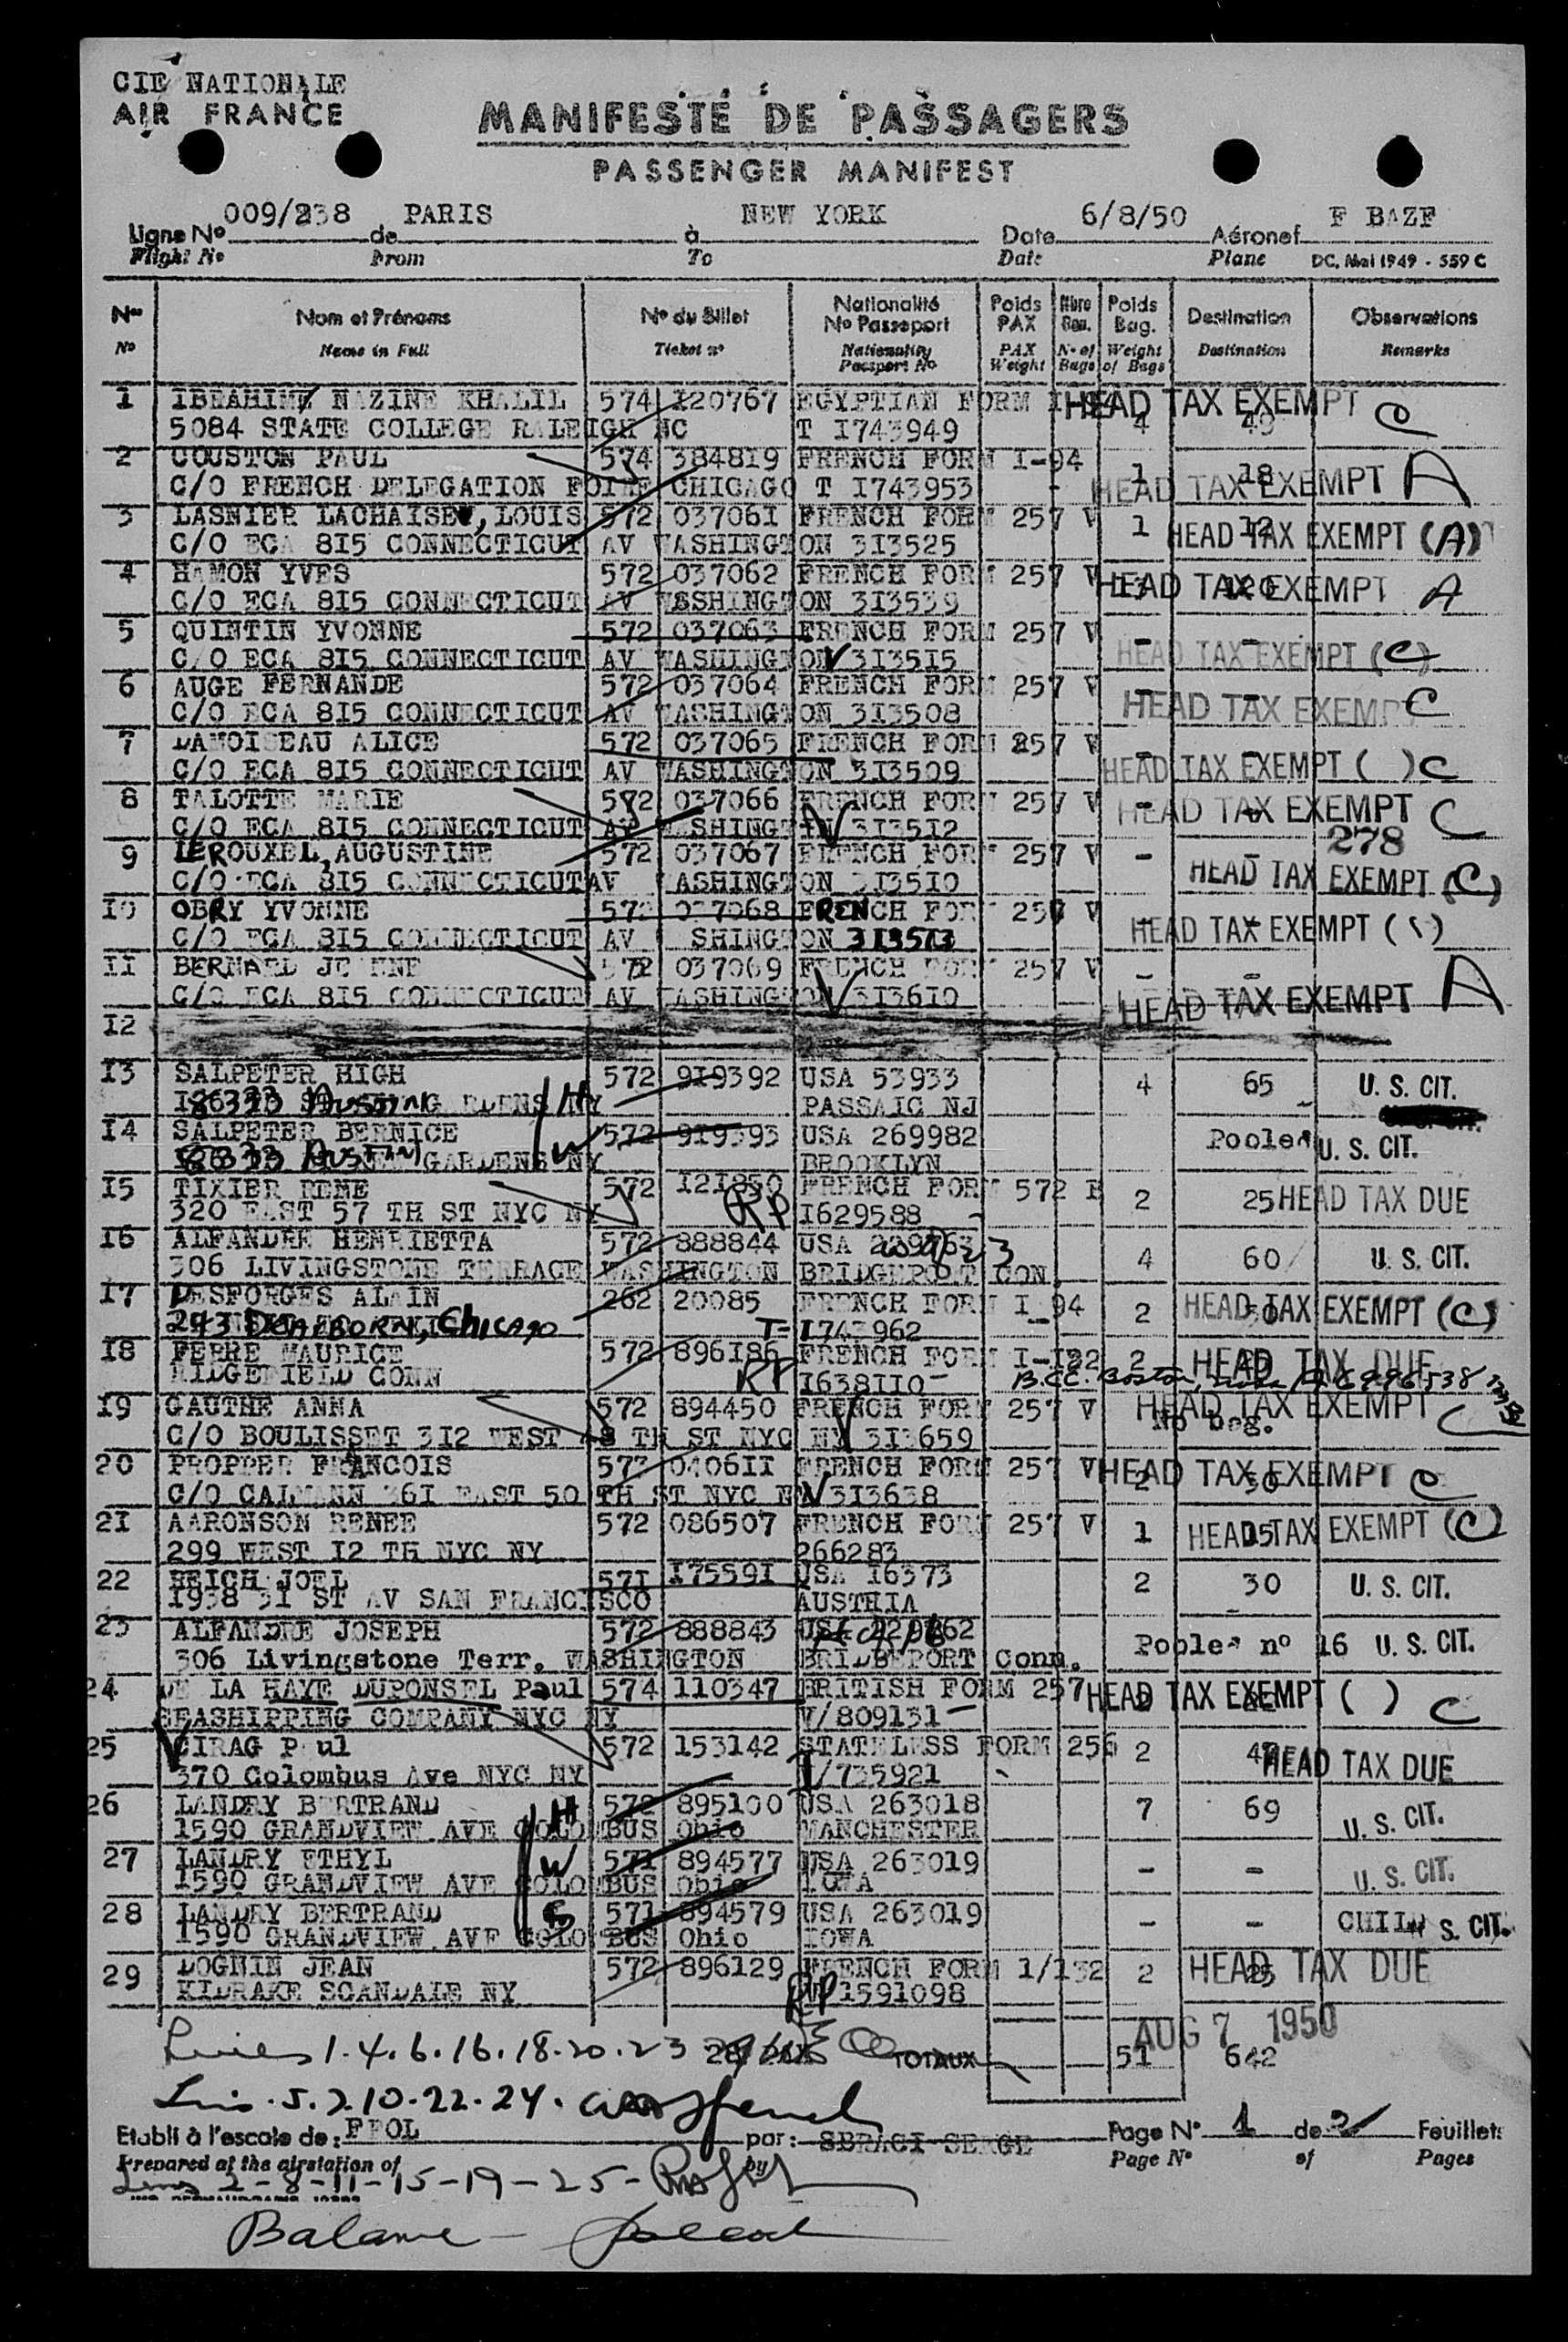 CIE NATIONALE
AIR FRANCE
MANIFESTE DE PASSAGERS
PASSENGER MANIFEST
009/238 PARIS NEW YORK 6/8/50 F BAZF
Ligne No de à Date Aéronef
Flight No From To Date Plane DC. Mai 1949 - 559 C
Nos Nom et Prénoms No du Billet Nationalité No Passeport Poids PAX Nbre Bag. Poids Bag. Destination Observations
No Name in Full Ticket no Nationality Passport No PAX Weight No of Bags Weight of Bags Destination Remarks
1 IBRAHIM NAZINE KHALIL 574 I20767 EGYPTIAN FORM HEAD TAX EXEMPT C
5084 STATE COLLEGE RALEIGH NC T I743949 4
2 COUSTON PAUL 574 384819 FRENCH FORM I-94 1 18
C/O FRENCH DELEGATION CHICAGO T I743953 - HEAD TAX EXEMPT A
3 LASNIER LACHAISE, LOUIS 572 037061 FRENCH FORM 257 V 1 12
C/O ECA 8I5 CONNECTICUT AV WASHINGTON 3I3525 HEAD TAX EXEMPT (A)
4 HAMON YVES 572 037062 FRENCH FORM 257 V
C/O ECA 8I5 CONNECTICUT AV WASHINGTON 3I3539 HEAD TAX EXEMPT A
5 QUINTIN YVONNE 572 037063 FRENCH FORM 257 V - -
C/O ECA 8I5 CONNECTICUT AV WASHINGTON 3I35I5 HEAD TAX EXEMPT (C)
6 AUGE FERNANDE 572 037064 FRENCH FORM 257 V - -
C/O ECA 8I5 CONNECTICUT AV WASHINGTON 3I3508 HEAD TAX EXEMPT C
7 DAMOISEAU ALICE 572 037065 FRENCH FORM 257 V - -
C/O ECA 8I5 CONNECTICUT AV WASHINGTON 3I3509 HEAD TAX EXEMPT ( ) C
8 TALOTTE MARIE 572 037066 FRENCH FORM 257 V - -
C/O ECA 8I5 CONNECTICUT AV WASHINGTON 3I35I2 HEAD TAX EXEMPT C
278
9 LEROUXEL, AUGUSTINE 572 037067 FRENCH FORM 257 V - -
C/O ECA 8I5 CONNECTICUT AV WASHINGTON 3I35I0 HEAD TAX EXEMPT (C)
I0 OBRY YVONNE 572 037068 FRENCH FORM 257 V - -
C/O ECA 8I5 CONNECTICUT AV WASHINGTON 3I35I3 HEAD TAX EXEMPT
II BERNARD JEANNE 572 037069 FRENCH FORM 257 V - -
C/O ECA 8I5 CONNECTICUT AV WASHINGTON 3I36I0 HEAD TAX EXEMPT A
I2
I3 SALPETER HIGH 572 9I9392 USA 53933 4 65 U. S. CIT.
Austin H NY PASSAIC NJ
I4 SALPETER BERNICE 572 9I9393 USA 269982 Pooled U. S. CIT.
Austin GARDENS W NY BROOKLYN
I5 TIXIER RENE 572 I2I850 FRENCH FORM 572 B 2 25 HEAD TAX DUE
320 EAST 57 TH ST NYC NY RP I629588
I6 ALFANDRE HENRIETTA 572 888844 USA 4 60 U. S. CIT.
306 LIVINGSTONE TERRACE WASHINGTON BRIDGEPORT CON.
I7 DESFORGES ALAIN 262 20085 FRENCH FORM I 94 2 30 HEAD TAX EXEMPT (C)
DEARBORN, Chicago T- I743962
I8 FERRE MAURICE 572 896I86 FRENCH FORM I-I32 2 HEAD TAX DUE
RIDGEFIELD CONN RP I638II0 B.C.C. Boston
I9 GAUTHE ANNA 572 894450 FRENCH FORM 257 V HEAD TAX EXEMPT C
C/O BOULISSET 3I2 WEST 48 TH ST NYC NY 3I3659 No bag.
20 PROPPER FRANCOIS 572 0406II FRENCH FORM 257 V 2 30 HEAD TAX EXEMPT C
C/O CALMANN 36I EAST 50 TH ST NYC NY 3I3638
2I AARONSON RENEE 572 086507 FRENCH FORM 257 V 1 15 HEAD TAX EXEMPT (C)
299 WEST I2 TH NYC NY 266283
22 REICH JOEL 57I I7559I USA I6373 2 30 U. S. CIT.
I938 3I ST AV SAN FRANCISCO AUSTRIA
23 ALFANDRE JOSEPH 572 888843 USA Pooled no 16 U. S. CIT.
306 Livingstone Terr. WASHINGTON BRIDGEPORT Conn.
24 DE LA HAYE DUPONSEL Paul 574 110347 BRITISH FORM 257 HEAD TAX EXEMPT ( ) C
SEASHIPPING COMPANY NYC NY V/809131
25 CIRAG Paul 572 153142 STATELESS FORM 256 2 HEAD TAX DUE
370 Colombus Ave NYC NY V/735921
26 LANDRY BERTRAND H 572 895100 USA 263018 7 69 U. S. CIT.
1590 GRANDVIEW AVE COLOMBUS Ohio MANCHESTER
27 LANDRY ETHYL W 571 894577 USA 263019 - - U. S. CIT.
1590 GRANDVIEW AVE COLOMBUS Ohio IOWA
28 LANDRY BERTRAND S 571 894579 USA 263019 - - CHILD U. S. CIT.
1590 GRANDVIEW AVE COLOMBUS Ohio IOWA
29 DOGNIN JEAN 572 896129 FRENCH FORM 1/132 2 25 HEAD TAX DUE
KIDRAKE SCANDALE NY RP 1591098
AUG 7 1950
Lines 1.4.6.16.18.20.23 28 PAX TOTAUX 51 642
Lines .5.7.10.22.24.
Etabli à l'escale de : FPOL par : SBRAGI SERGE Page No 1 de 2 Feuillets
Prepared at the airstation of by Page No of Pages
Lines 2-8-11-15-19-25-
Balance -